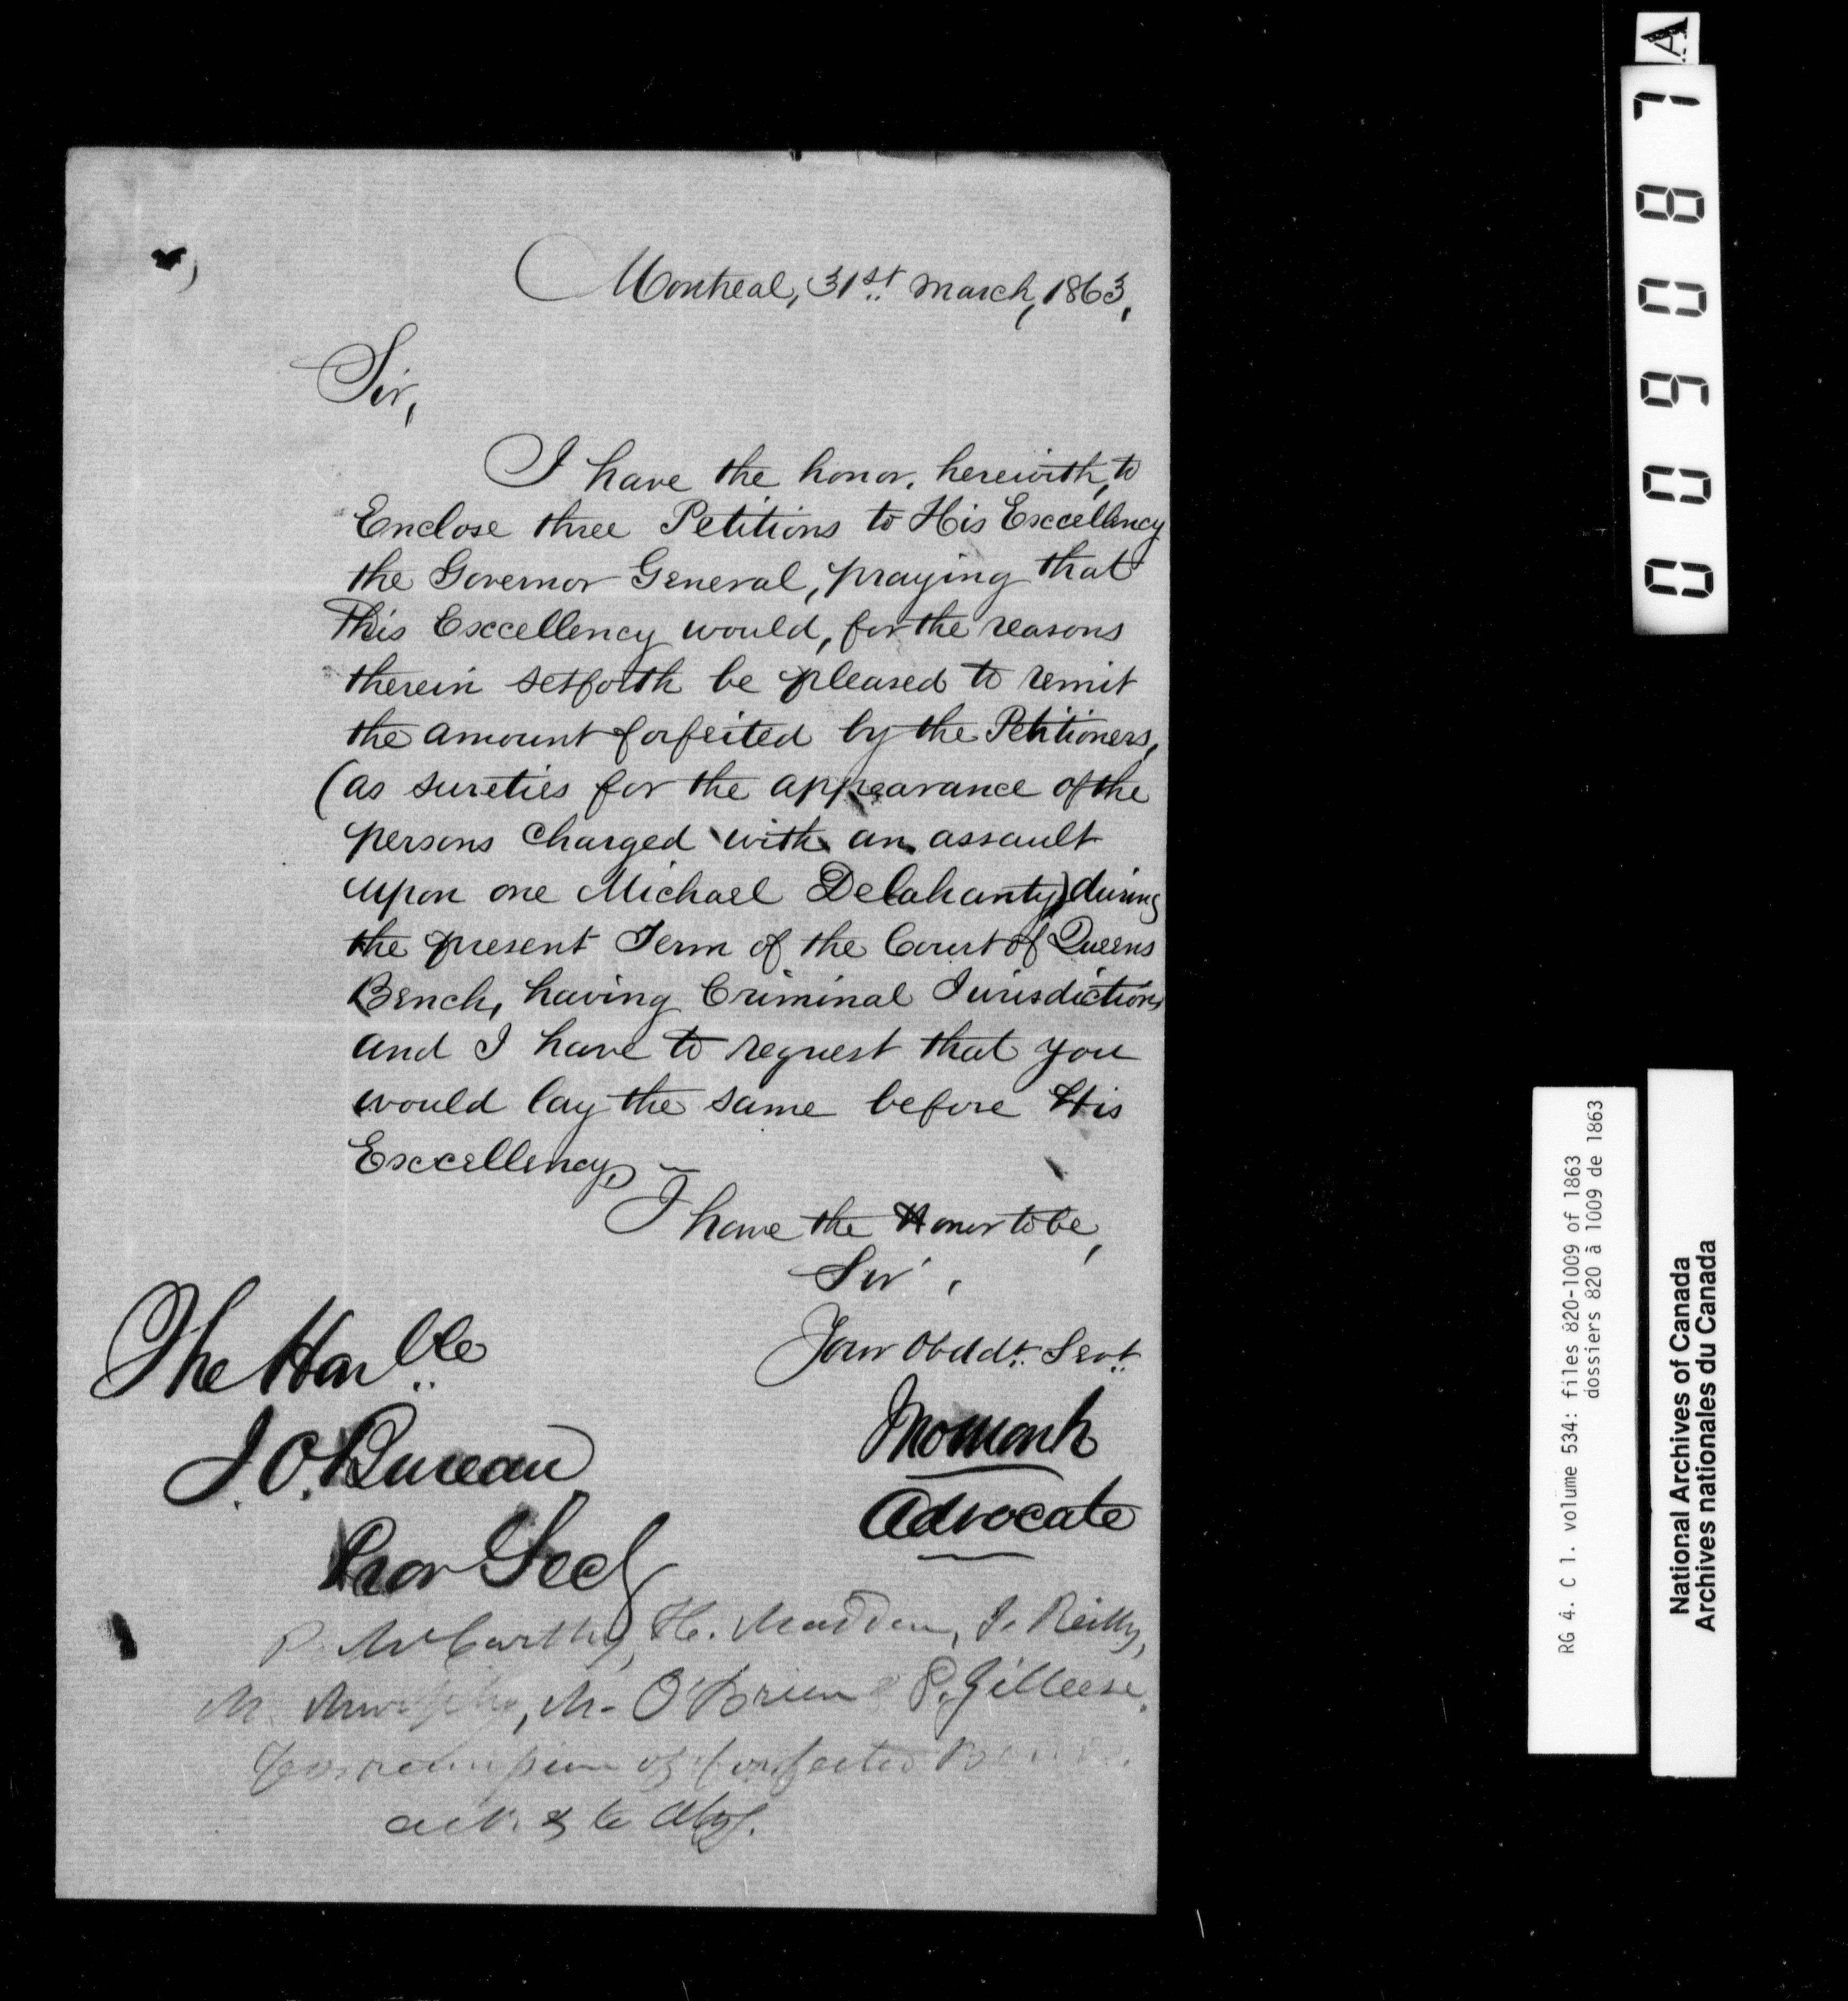 Montreal, 31st March, 1863,
Sir,
I have the honor, herewith, to
Enclose three Petitions to His Excellency
the Governor General, praying that
This Excellency would, for the reasons
therein setforth be pleased to remit
the amount forfeited by the Petitioners,
(as sureties for the appearance of the
persons charged with an assault
upon one Michael Delahanty) during
the present Term of the Court of Queens
Bench, having Criminal Jurisdiction,
and I have to request that you
would lay the same before His
Excellency, –
I have the Honor to be,
Sir,
Your Obedt. Servt.
The Honble
J. O. Bureau
Prov Secy
Advocate
P. McCarthy, H. Madden, J. Reilly,
M. Murphy, M. O'Brien & P. Gilleese.
for remission of forfeited
ack. &
A
000 6087
RG 4. C 1. volume 534: files 820-1009 of 1863
dossiers 820 à 1009 de 1863
National Archives of Canada
Archives nationales du Canada